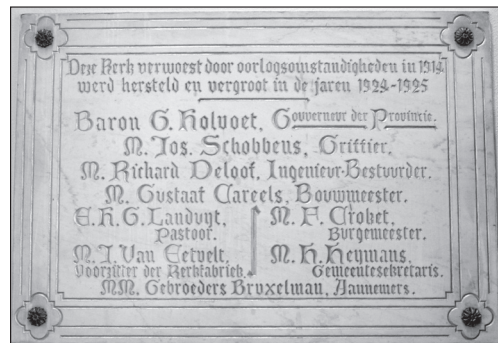 Deze Kerk verwoest door oorlogsomstandigheden in 1914
werd hersteld en vergroot in de jaren 1924-1925
Baron G. Holvoet, Gouverneur der Provincie.
M. Jos. Schobbens, Griffier.
M. Richard Deloof, Ingenieur-Bestuurder.
M. Gustaaf Careels, Bouwmeester.
E.H.G. Landuyt,
Pastoor.
M. J. Van Eetvelt,
Voorzitter der Kerkfabriek.
M. F. Crobet,
Burgemeester.
M. H. Heymans,
Gemeentesekretaris.
MM. Gebroeders Bruxelman, Aannemers.